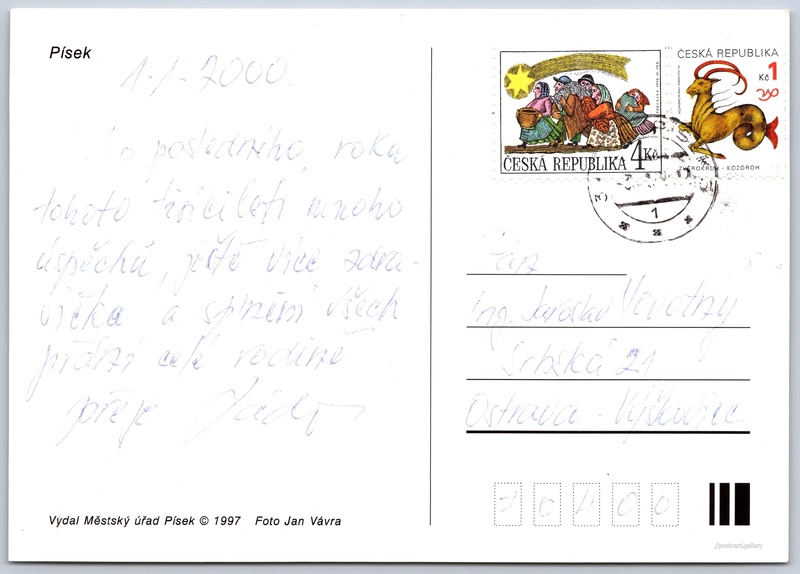 Písek
1.1.2000
Do posledního roku
tohoto tisíciletí mnoho
úspěchů, ještě více zdra-
víčka a splnění všech
přání celé rodině
přeje
ČESKÁ REPUBLIKA 4 Kč
ČESKÁ REPUBLIKA
Kč 1
ZVĚROKRUH - KOZOROH
1
Ing. Jaroslav Novotný
Srbská 21
Ostrava - Výškovice
70400
Vydal Městský úřad Písek © 1997 Foto Jan Vávra
postcard.gallery